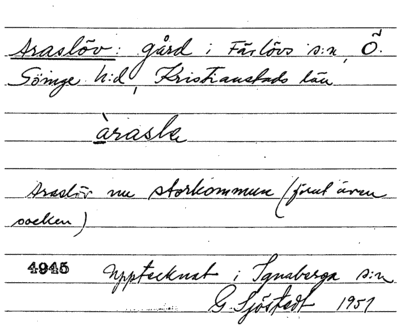 Araslöv: gård i Färlövs s:n, Ö.
Göinge h:d, Kristianstads län
àraslε
Araslöv nu storkommun (förut även
socken)
4945 Upptecknat i Ignaberga s:n
G. Sjöstedt 1951